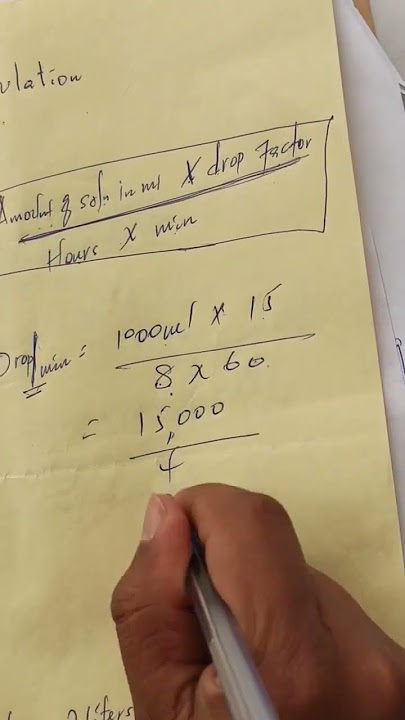 ulation
Amount of soln in ml X drop Factor
Hours X min
Drop/min = 1000ml x 15
8 x 60
= 15,000